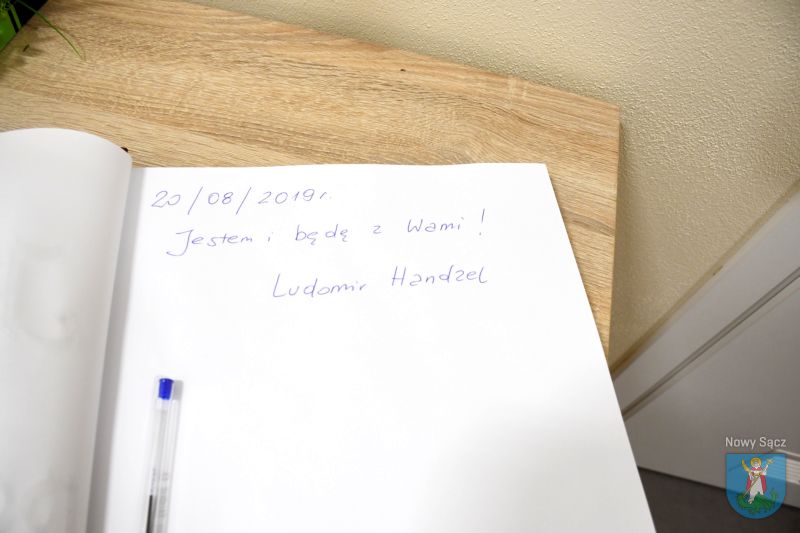 20/08/2019r.
Jestem i będę z Wami!
Ludomir Handzel
Nowy Sącz